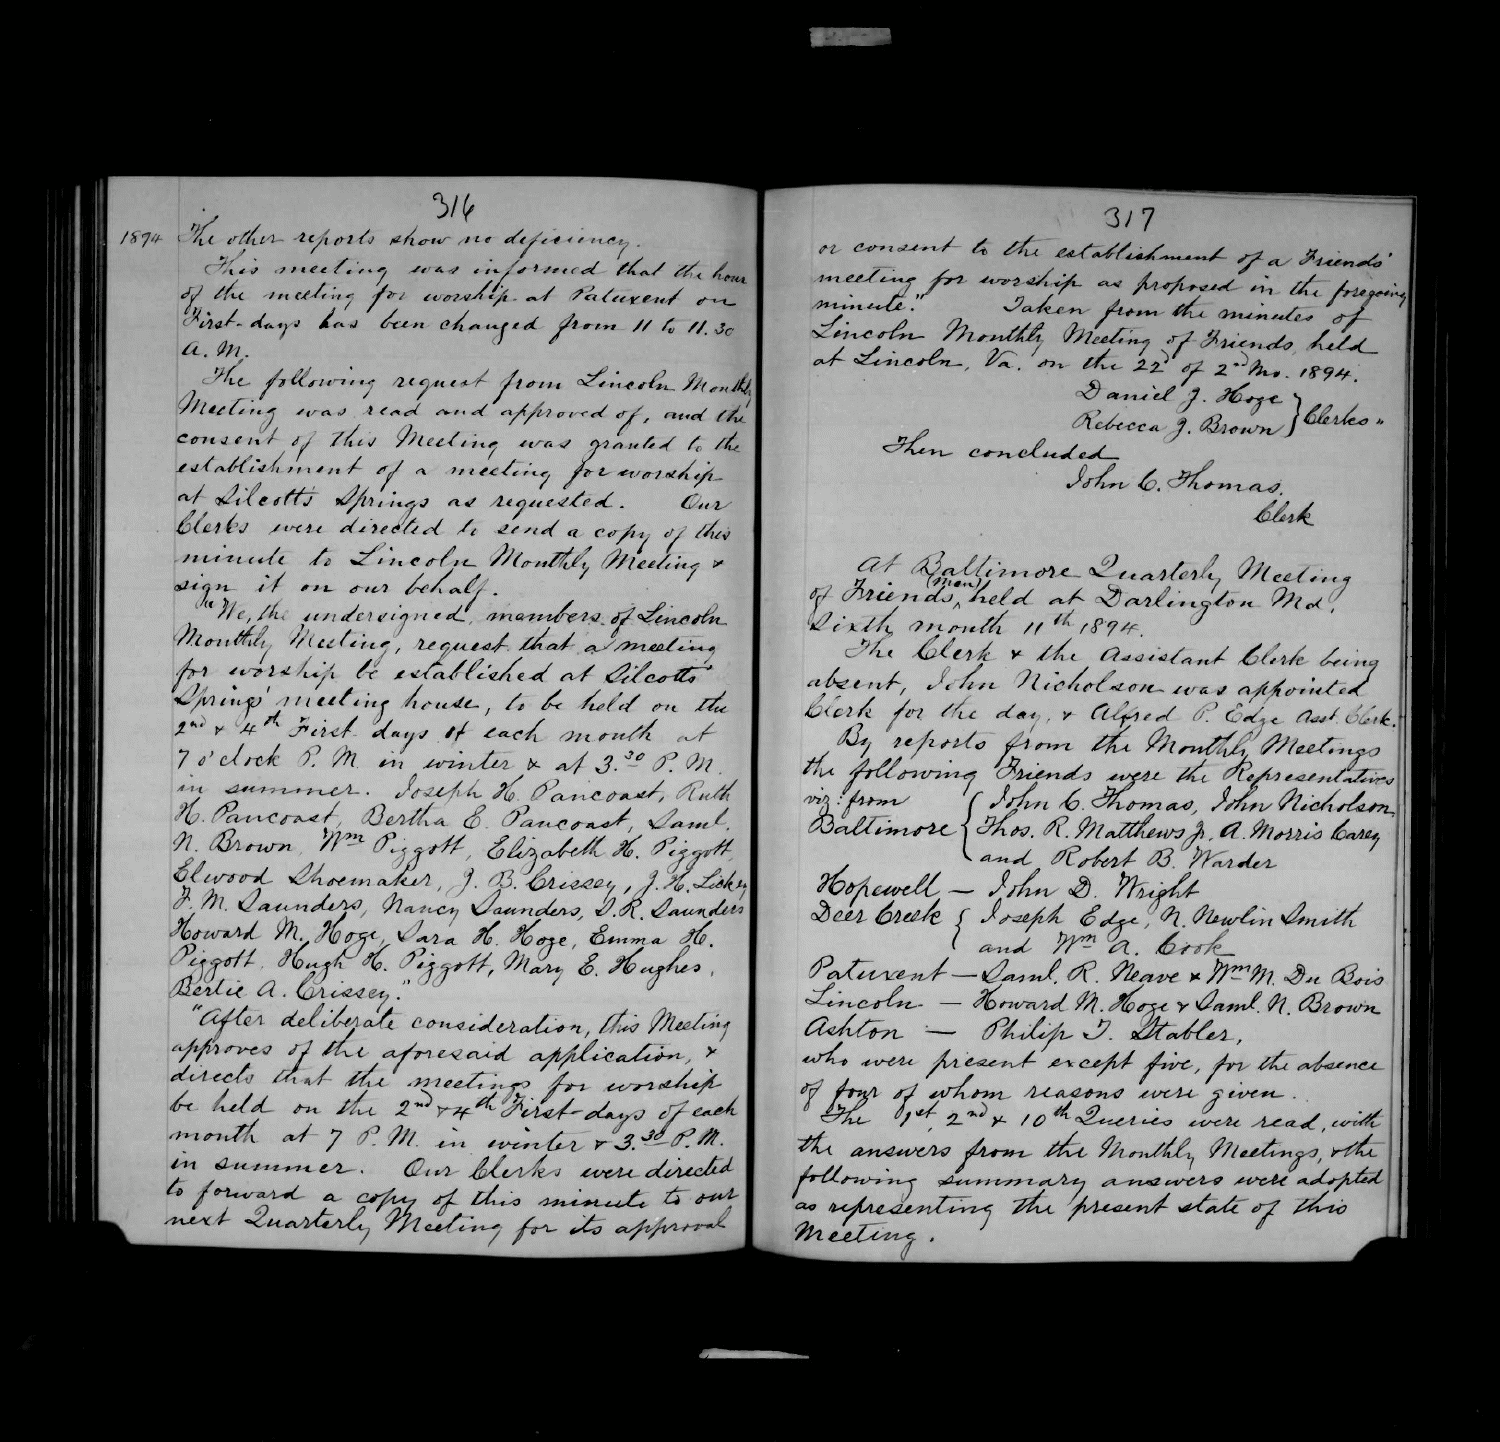 316
1894 The other reports show no deficiency.
This meeting was informed that the hour
of the meeting for worship at Patuxent on
First-days has been changed from 11 to 11.30
A.M.
The following request from Lincoln Monthly
Meeting was read and approved of, and the
consent of this Meeting was granted to the
establishment of a meeting for worship
at Silcott's Springs as requested. Our
Clerks were directed to send a copy of this
minute to Lincoln Monthly Meeting &
sign it on our behalf.
"We, the undersigned, members of Lincoln
Monthly Meeting, request that a meeting
for worship be established at Silcotts'
Springs' meeting house, to be held on the
2nd & 4th First days of each month at
7 o'clock P.M. in winter & at 3.30 P.M.
in summer. Joseph H. Pancoast, Ruth
H. Pancoast, Bertha E. Pancoast, Saml.
N. Brown, Wm Piggott, Elizabeth H. Piggott,
Elwood Shoemaker, J. B. Crissey, J. H. Lickey
F. M. Saunders, Nancy Saunders, S. R. Saunders
Howard M. Hoge, Sara H. Hoge, Emma H.
Piggott, Hugh H. Piggott, Mary E. Hughes,
Bertie A. Crissey."
"After deliberate consideration, this Meeting
approves of the aforesaid application, &
directs that the meetings for worship
be held on the 2nd & 4th First-days of each
month at 7 P.M. in winter & 3.30 P.M.
in summer. Our Clerks were directed
to forward a copy of this minute to our
next Quarterly Meeting for its approval
317
or consent to the establishment of a Friends'
meeting for worship as proposed in the foregoing
minute." Taken from the minutes of
Lincoln Monthly Meeting of Friends, held
at Lincoln, Va. on the 22d of 2nd Mo. 1894.
Daniel J. Hoge
Rebecca J. Brown } Clerks"
Then concluded
John C. Thomas.
Clerk
At Baltimore Quarterly Meeting
of Friends, (men) held at Darlington Md,
Sixth month 11th 1894.
The Clerk & the Assistant Clerk being
absent, John Nicholson was appointed
Clerk for the day, & Alfred P. Edge Asst. Clerk.
By reports from the Monthly Meetings
the following Friends were the Representatives
viz: from { John C. Thomas, John Nicholson
Baltimore { Thos. R. Matthews Jr, A. Morris Carey
and Robert B. Warder
Hopewell — John D. Wright
Deer Creek { Joseph Edge, N. Newlin Smith
and Wm A. Cook
Patuxent — Saml. R. Neave & Wm M. Du Bois
Lincoln — Howard M. Hoge & Saml. N. Brown
Ashton — Philip T. Stabler,
who were present except five, for the absence
of four of whom reasons were given.
The 1st, 2nd & 10th Queries were read, with
the answers from the Monthly Meetings, & the
following summary answers were adopted
as representing the present state of this
Meeting.